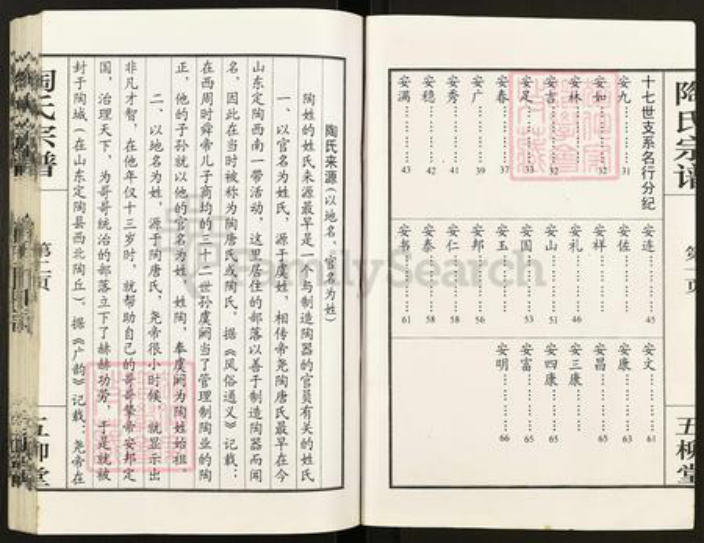 陶氏宗谱
第一页
五柳堂
十七世支系名行分纪
安九……31
安如……32
安林……32
安吉……32
安足……33
安春……37
安广……39
安秀……41
安穗……42
安满……43
安连……45
安佐……46
安祥……46
安礼……51
安山……51
安国……53
安玉……56
安邦……56
安仁……58
安泰……58
安书……61
安文……61
安康……63
安昌……65
安三康……65
安四康……65
安富……65
安明……66
陶氏来源(以地名、官名为姓)
陶姓的姓氏来源最早是一个与制造陶器的官员有关的姓氏
一、以官名为姓氏,源于虞姓,相传帝尧陶唐氏最早在今
山东定陶西南一带活动,这里居住的部落以善于制造陶器而闻
名,因此在当时被称为陶唐氏或陶氏。据《风俗通义》记载:
在西周时舜帝儿子商均的三十二世孙虞阏当了管理制陶业的陶
正,他的子孙就以他的官名为姓,姓陶,奉虞阏为陶姓始祖。
二、以地名为姓,源于陶唐氏,尧帝很小时候,就显示出
非凡才智,在他年仅十三岁时,就帮助自己的哥哥挚帝安邦定
国,治理天下,为哥哥统治的部落立下了赫赫功劳,于是就被
封于陶城(在山东定陶县西北陶丘)。据《广韵》记载:尧帝在
陶氏宗谱
第一页
五柳堂
FamilySearch